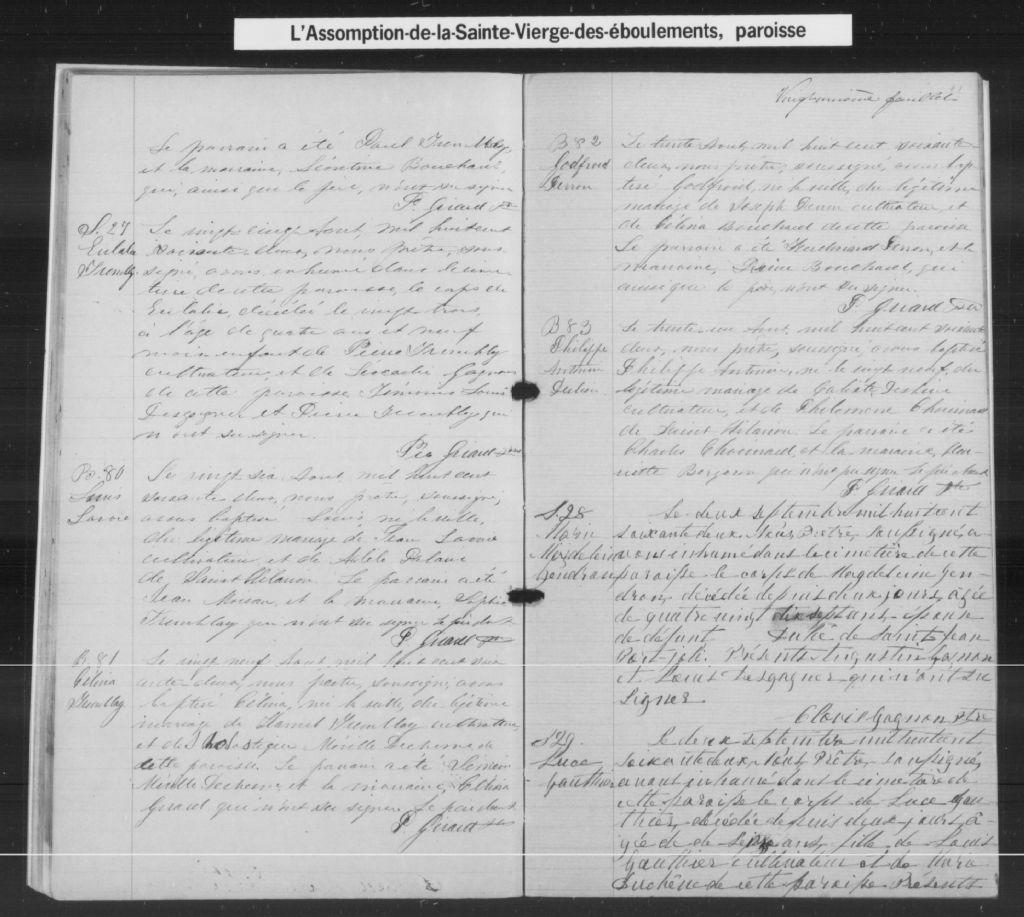 L'Assomption-de-la-Sainte-Vierge-des-éboulements, paroisse
Le parrain a été Paul Tremblay
et la marraine, Bouchard,
qui, ainsi que le père, n'ont su signer
F. Girard Ptre
S. 27
Eulalie
Tremblay
Le vingt cinq Aout, mil huit cent
soixante-deux, nous prêtre, sous-
signé, avons inhumé dans le cime-
tière de cette paroisse, le corps de
Eulalie, décédée le vingt trois,
à l'âge de quatre ans et neuf
mois enfant de Pierre Tremblay
cultivateur, et de Léocadie Gagnon
de cette paroisse. Témoins Louis
Desgagner et Pierre Tremblay qui
n'ont su signer.
Girard Ptre
B. 80
Louis
Savoie
Le vingt six Aout, mil huit cent
soixante deux, nous prêtre, soussigné,
avons baptisé Louis, né la veille,
du légitime mariage de Jean Savoie
cultivateur et de Adèle
de Saint Hilarion. Le parrain a été
Jean et la marraine, Sophie
Tremblay qui n'ont su signer le père absent
F. Girard Ptre
B. 81
Célina
Tremblay
Le vingt neuf Aout, mil huit cent soix-
ante deux, nous prêtre, soussigné, avons
baptisé Célina, née la veille, du légitime
mariage de Tremblay cultivateur
et de Scholastique Mirette Duchesne de
cette paroisse. Le parrain a été
Mirette Duchesne, et la marraine, Célina
Girard qui n'ont su signer le père absent
F. Girard Ptre
Vingt-unième feuillet
B 82
Godfroid
Perron
Le trente Aout, mil huit cent soixante
deux, nous prêtre, soussigné, avons bap-
tisé Godfroid, né la veille, du légitime
mariage de Joseph Perron cultivateur, et
de Célina Bouchard de cette paroisse
Le parrain a été Ferdinand Perron, et la
marraine, Bouchard, qui
ainsi que le père, n'ont su signer.
F. Girard Ptre
B 83
Philippe
Antoine
Le trente-un Aout, mil huit cent soixante
deux, nous prêtre, soussigné, avons baptisé
Philippe Antoine, né le vingt neuf, du
légitime mariage de
cultivateur, et de Philomène Chouinard
de Saint Hilarion. Le parrain a été
Charles Chouinard, et la marraine, Hen-
riette Bergeron qui n'ont pu signer le père absent
F. Girard Ptre
S. 28
Marie
Magdeleine
Gendron
Le deux septembre mil huit cent
soixante deux, Nous Prêtre, soussigné, a-
vons inhumé dans le cimetière de cette
paroisse le corps de Magdeleine Gen-
dron, décédée depuis deux jours, agée
de quatre vingt dix sept ans, épouse
de défunt Dubé de Saint Jean
Port-joli. Présents Augustin Gagnon
et Louis Desgagner qui n'ont su
signer
Clovis Gagnon Ptre
S 29.
Luce
Gauthier
Le deux septembre mil huit cent
soixante deux, Nous Prêtre, soussigné,
avons inhumé dans le cimetière de
cette paroisse le corps de Luce Gau-
thier, décédée depuis deux jours, a-
gée de ans, fille de Louis
Gauthier cultivateur et de
Duchêne de cette paroisse Présents